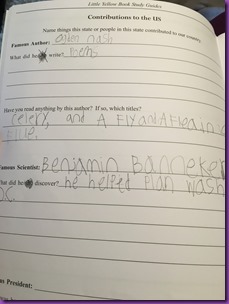 Little Yellow Book Study Guides
Contributions to the US
Name things this state or people in this state contributed to our country.
Famous Author: ogden nash
What did he write? Poems
Have you read anything by this author? If so, which titles?
Celery, and A Fly and A Flea in a
Flue.
Famous Scientist: Benjamin Banneker
What did he discover? he helped Plan wash
DC
President: